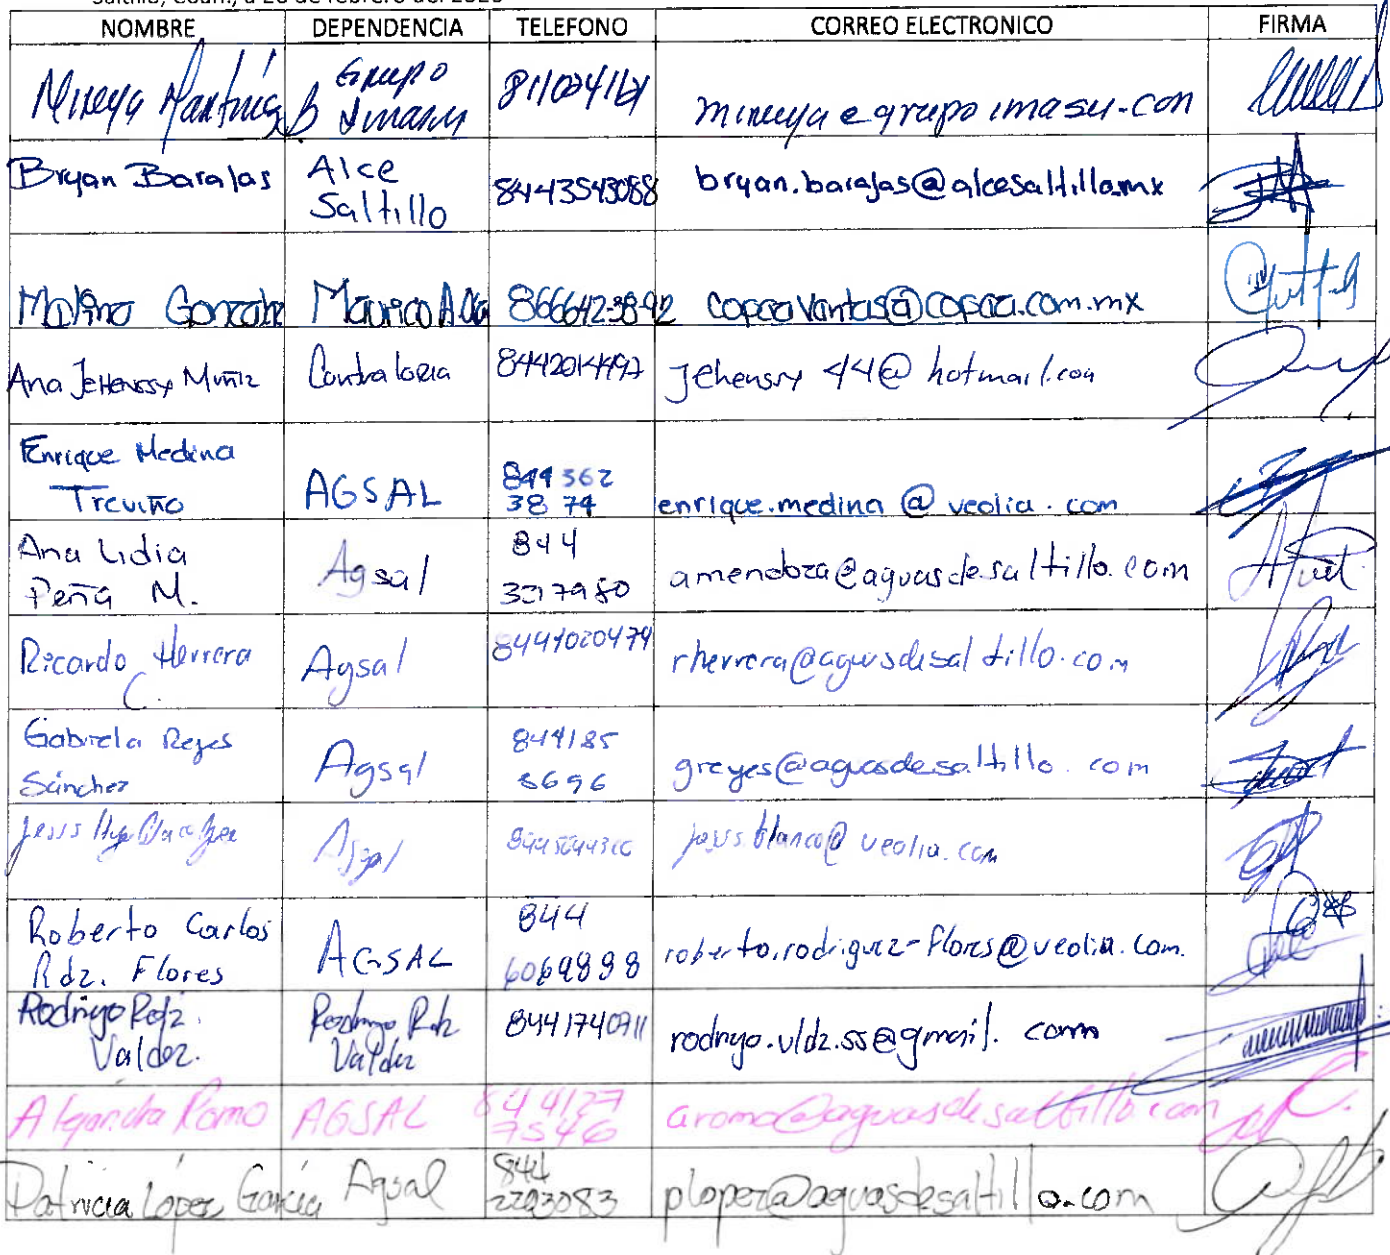 Saltillo, Coah., a 20 de febrero del 2020
NOMBRE DEPENDENCIA TELEFONO CORREO ELECTRONICO FIRMA
Mireya Martínez B Grupo Imasu
Bryan Barajas Alce Saltillo 8443543088 bryan.barajas@alcesaltillo.mx
Gonzalez 866642-38-92 copcavantas@copcaa.com.mx
Ana Jehenssy Muñiz Contraloria jehenssy44@hotmail.com
Enrique Medina
Treviño AGSAL 844 362 38 74 enrique.medina@veolia.com
Ana Lidia
Peña M. Agsal 844 amendoza@aguasdesaltillo.com
Ricardo Herrera
C. Agsal 8441020479 rherrera@aguasdesaltillo.com
Gabriela Reyes
Sánchez Agsal 844185 8696 greyes@aguasdesaltillo.com
Agsal jesus.blanco@veolia.com
Roberto Carlos
Rdz. Flores AGSAL 844 6069898 roberto.rodriguez-flores@veolia.com.
Rodrigo Rdz.
Valdez. Rodrigo Rdz Valdez 8441740711 rodrigo.vldz.ss@gmail.com
Alejandra Romo AGSAL 844127 7546 aromo@aguasdesaltillo.com
Patricia López García Agsal 844 2203083 plopez@aguasdesaltillo.com